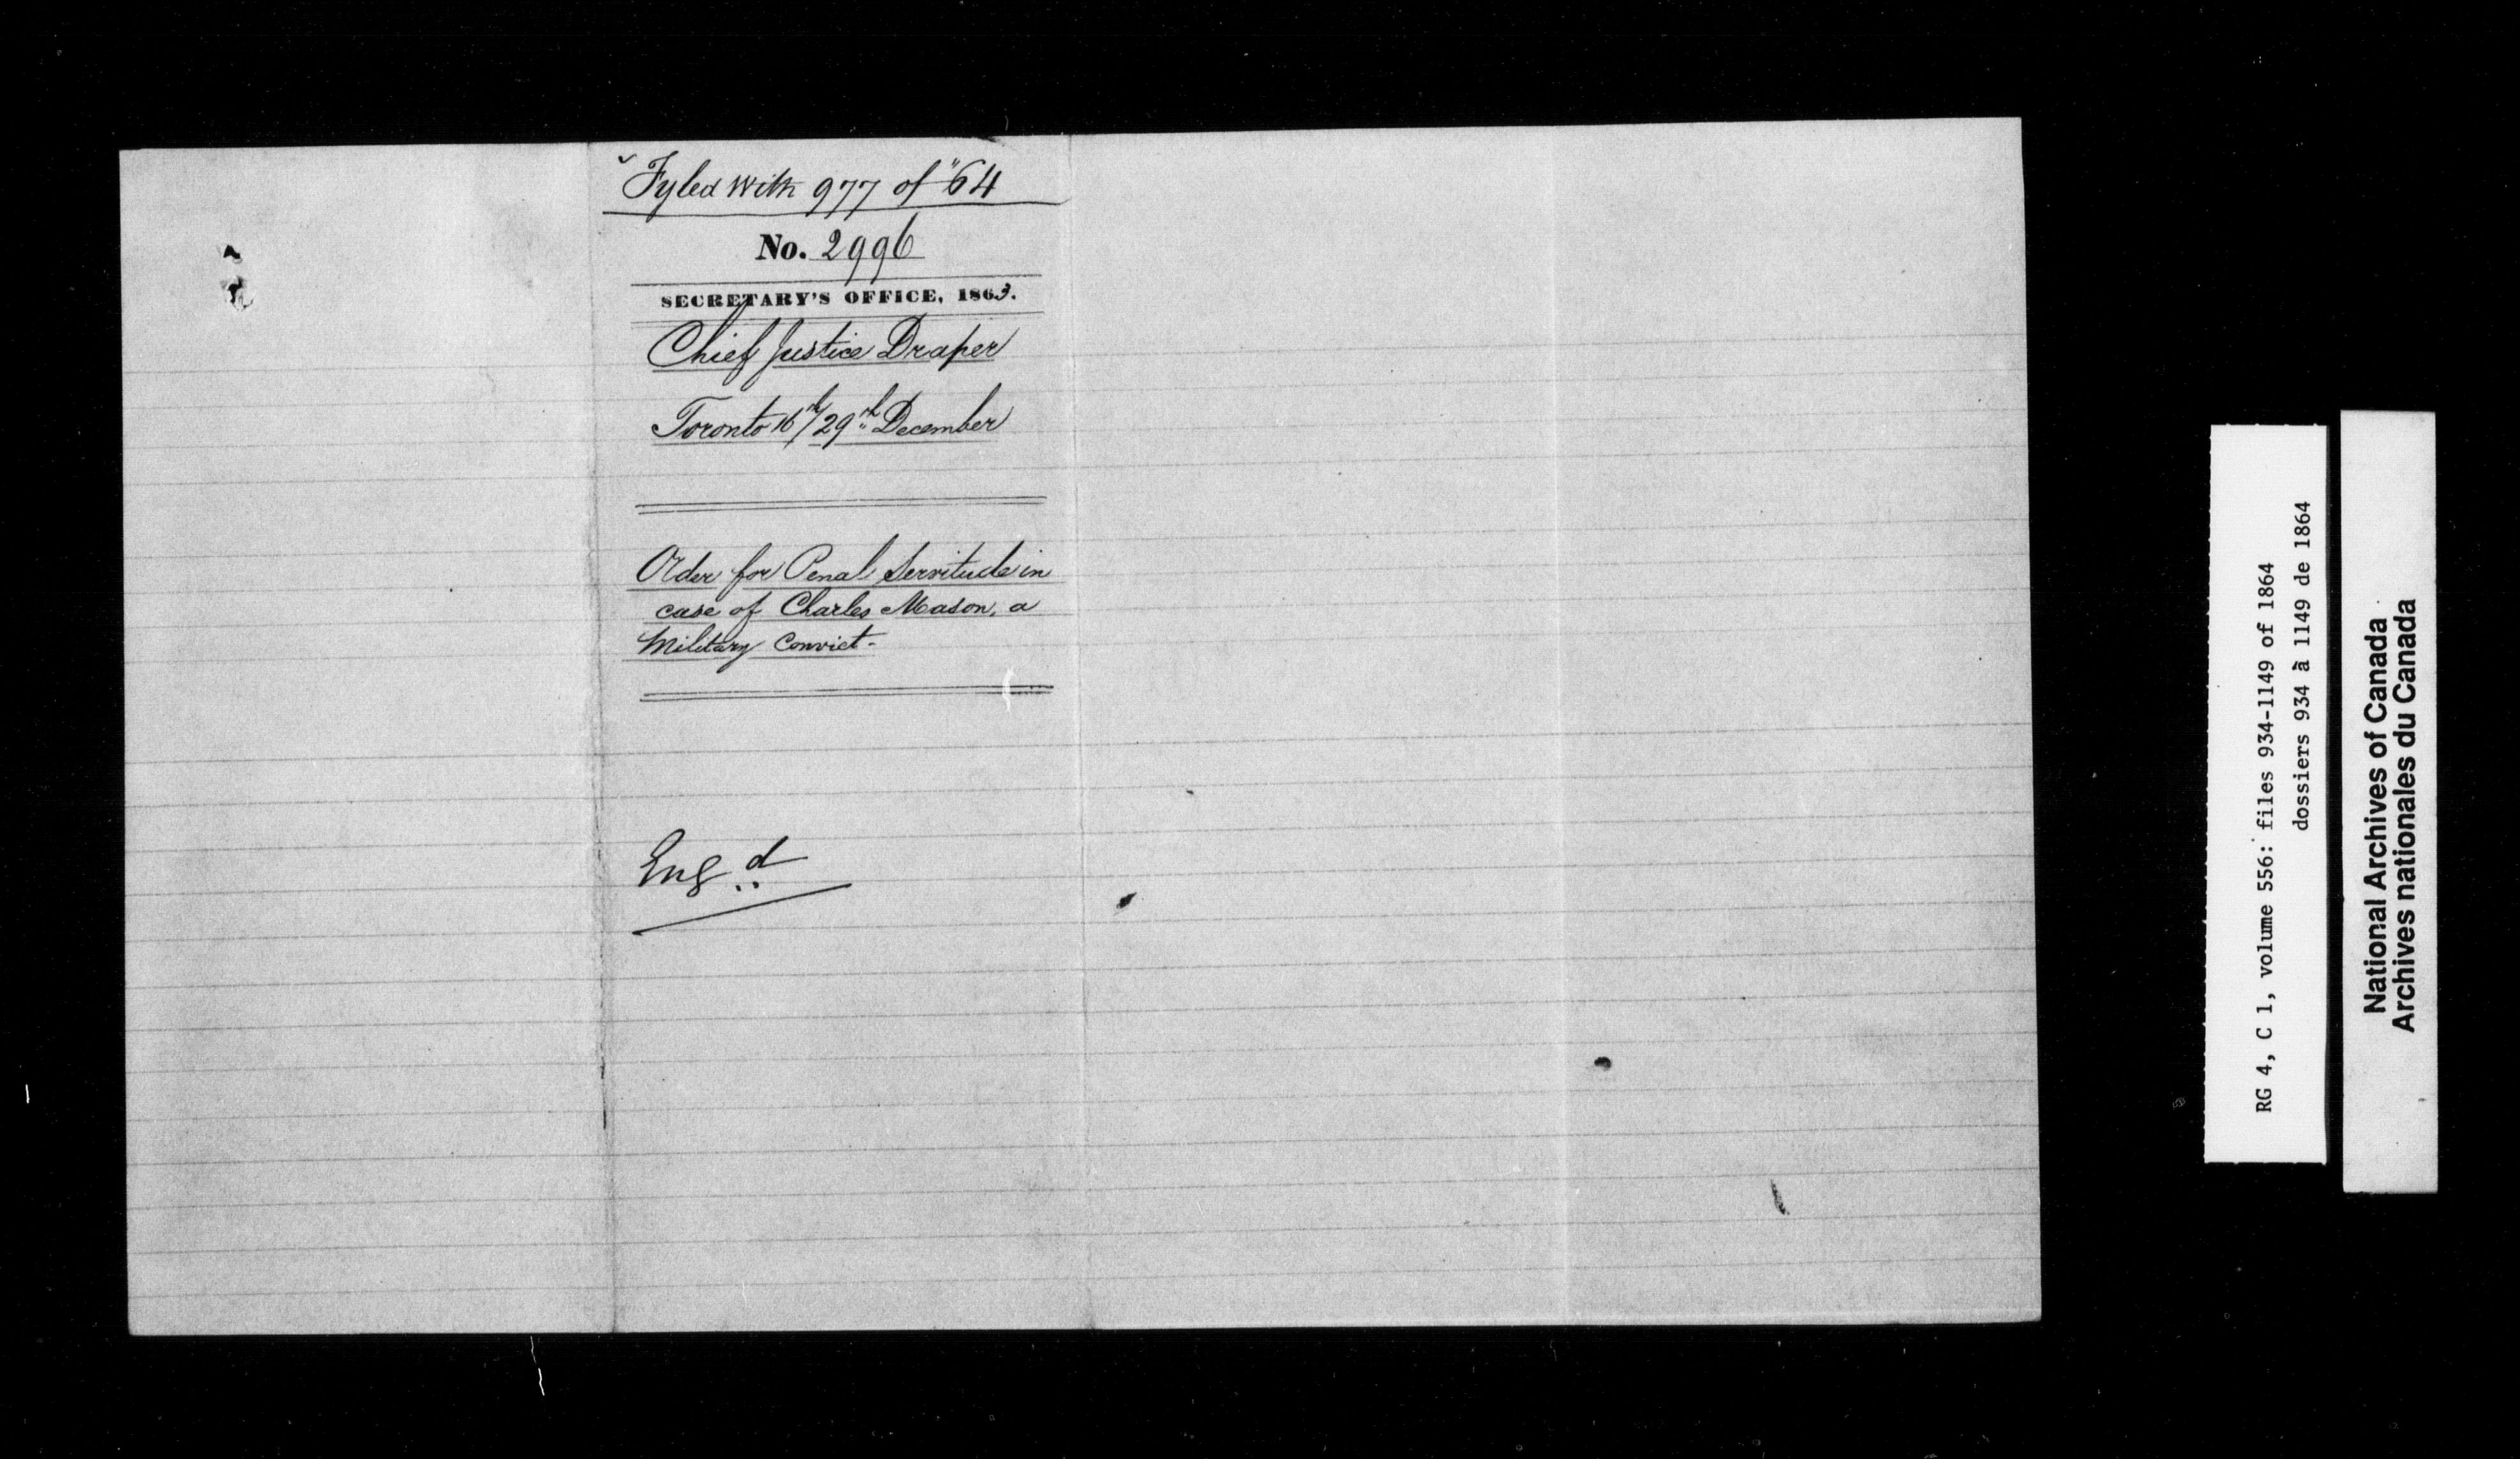 Fyled with 977 of "64
No. 2996
SECRETARY'S OFFICE, 1863.
Chief Justice Draper
Toronto 16th/29th December
Order for Penal Servitude in
case of Charles Mason, a
Military Convict-
Eng d
RG 4, C 1, volume 556: files 934-1149 of 1864
dossiers 934 à 1149 de 1864
National Archives of Canada
Archives nationales du Canada